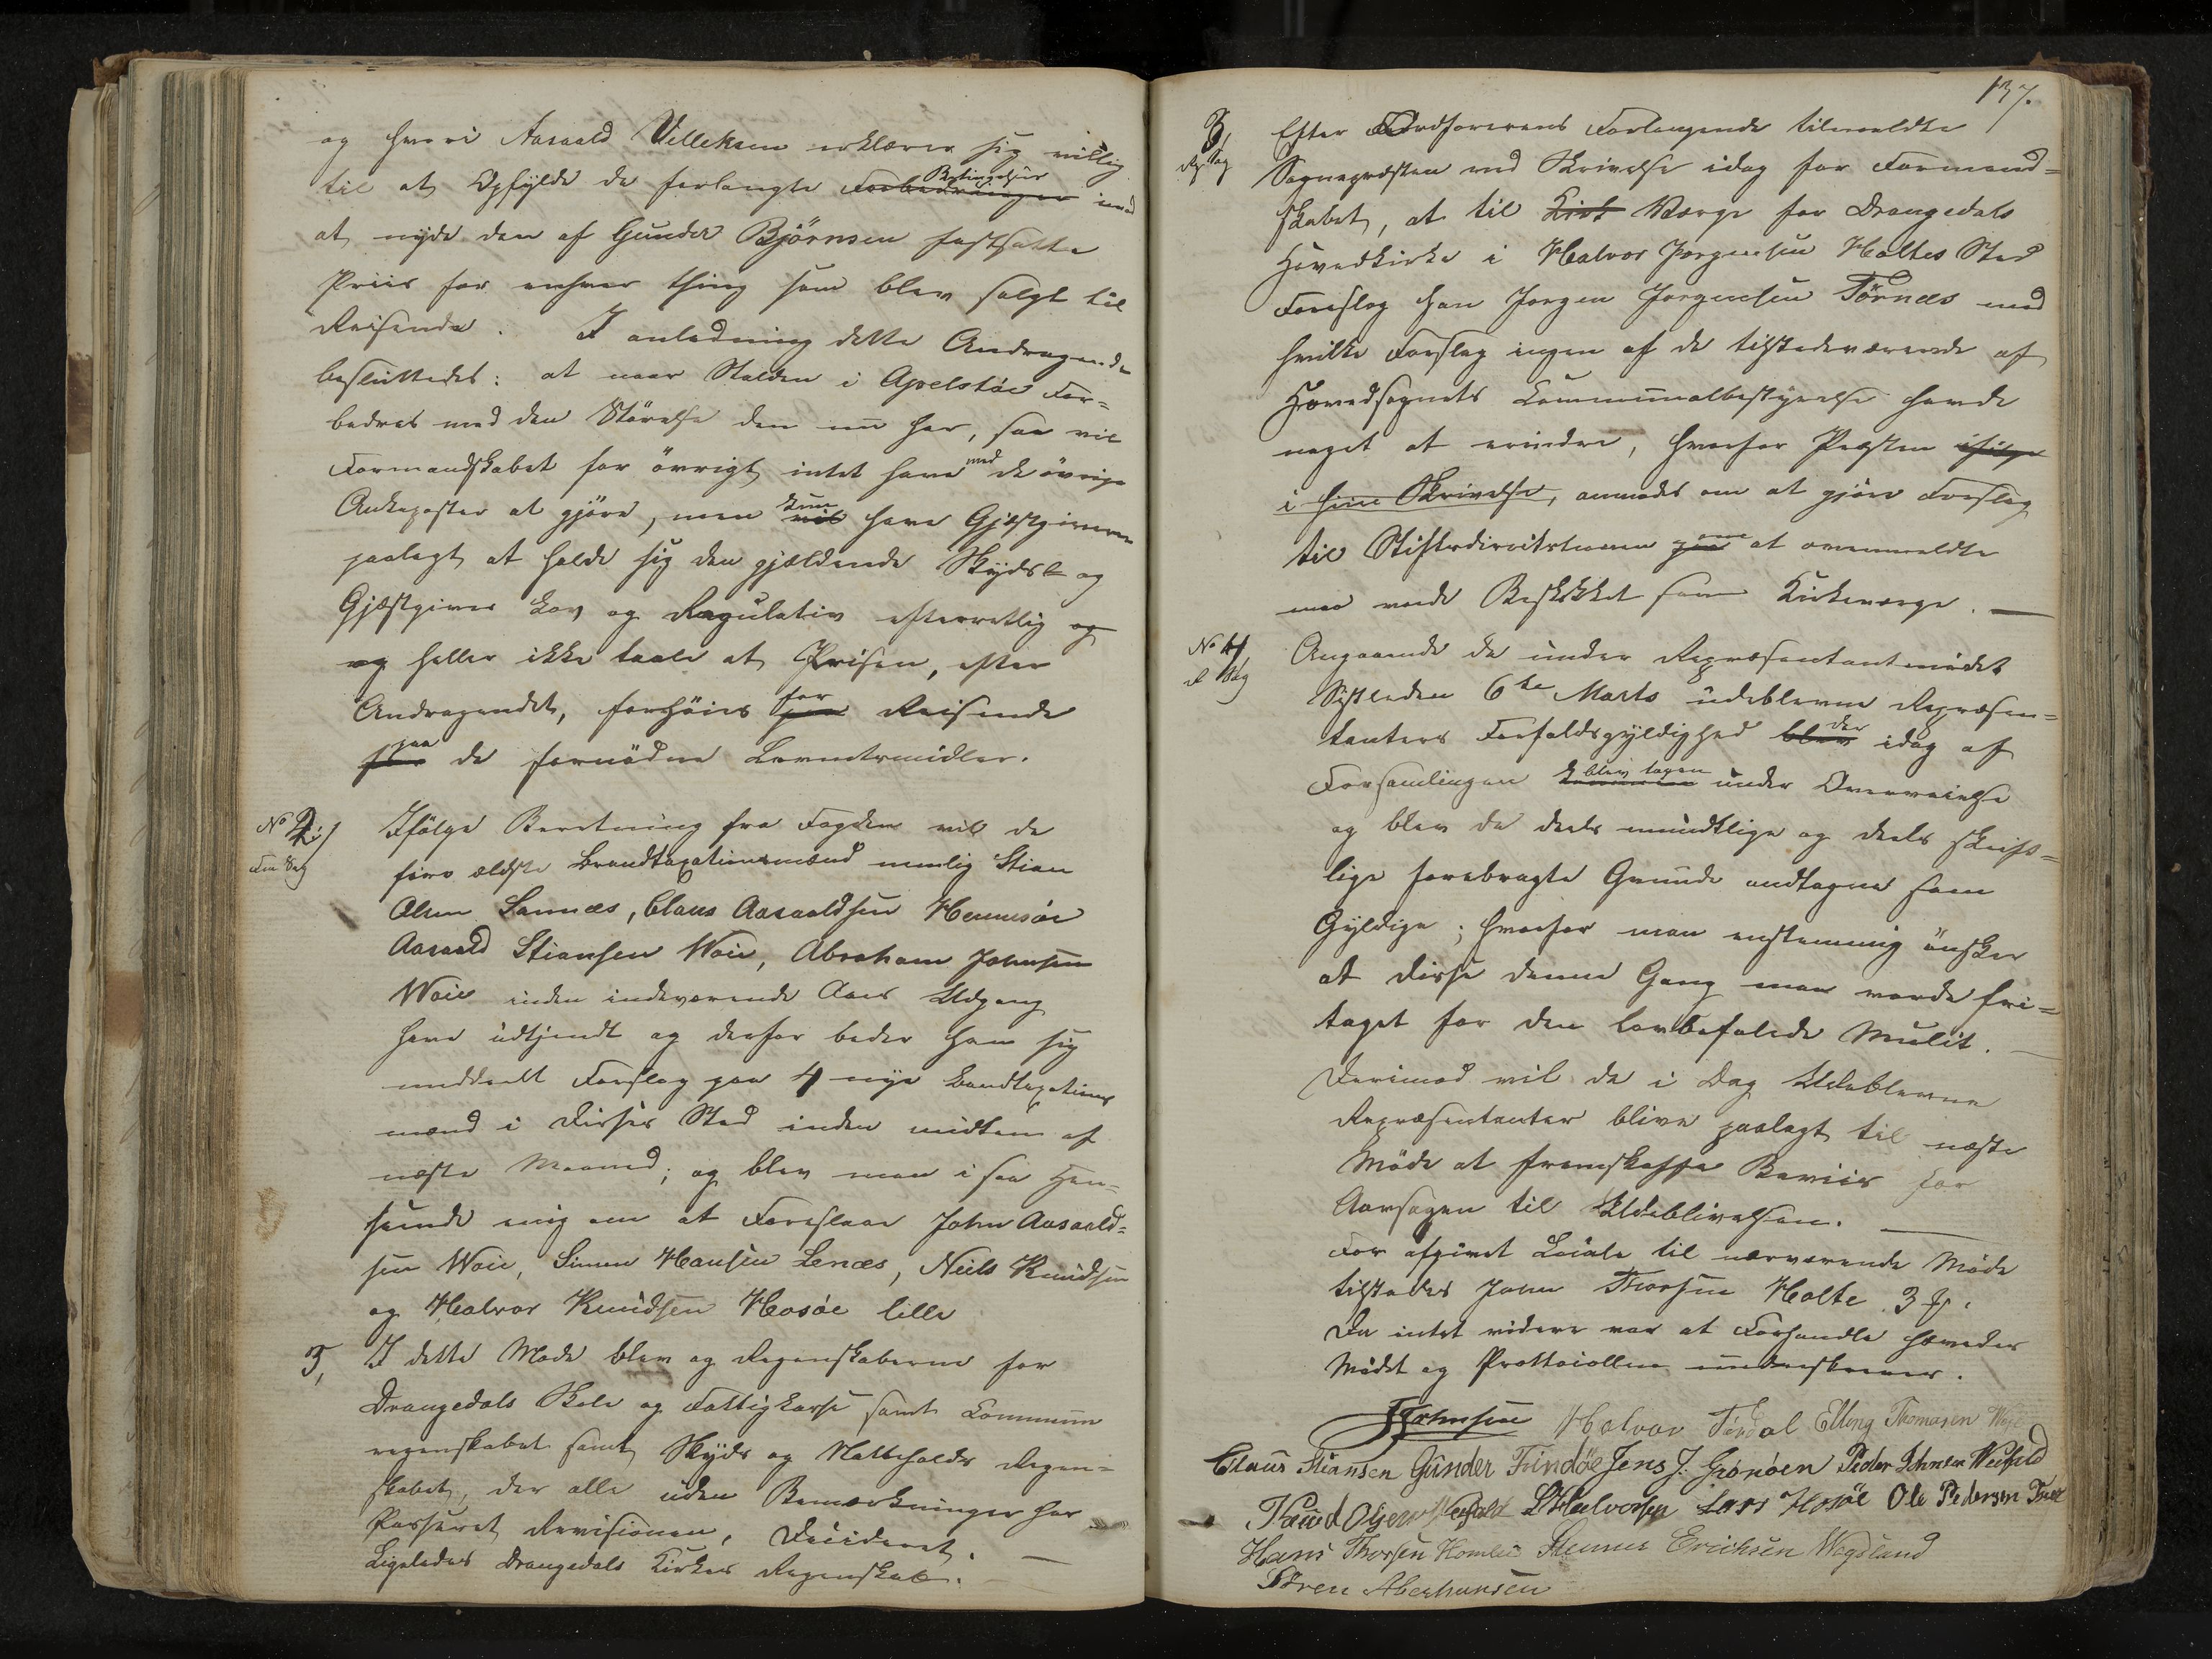 og hvori Aasaald Velleksen erklærer sig villig
til at Opfylde de forlangte Forbedringer Betingelser imod
at nyde den af Gunder Björnsen fastsatte
Priis for enhver thing som blev solgt til
Reisende. I anledning dette Andragende
besluttedes: at naar Stalden i Apelstöe For=
bedres med den Störelse den nu har, saa vil
Formandskabet for övrigt intet have med de övrige
Ankeposter at gjöre, men vil kun have Gjæstgiveren
paalagt at holde sig den gjældende Skyds- og
Gjæstgiver Lov og Regulativ efterretlig og
og heller ikke taale at Prisen, efter
Andragendet, forhöies paa for Reisende
for paa de fornödne Levnetsmidler.
No 2:/ Ifölge Beretning fra Fogden vil de
For Sag fire ældste Brandtaxationsmænd nemlig Stian
Olsen Sannæs, Claus Aasaaldsen Henneseie
Aasaald Stiansen Woie, Abraham Johnsen
Woie inden indeværende Aars Udgang
have udtjendt og derfor beder han sig
meddeelt Forslag paa 4 nye Brandtaxations
mænd i disses Sted inden midten af
næste Maaned; og blev man i saa Hen=
seende enig om at Foreslaae John Aasaald=
sen Woie, Simon Hansen Lenæs, Neils Knudsen
og Halvor Knudsen Hosöe lille
3, I dette Möde blev og Regenskaberne for
Drangedals Skole og Fattigkasse samt Commune
regenskabet samt Skyds og Natteholds Regen=
skabet, der alle uden Bemærkninger har
Passeret Revisionen, Decideret.
Ligeledes Drangedals Kirkes Regenskab. —
137.
3/ Efter Ordforerens Forlangende tilmeldte
Rp. Sag Sognepræsten ved Skrivelse idag for Formand=
skabet, at til Kirk Værge for Drangedals
Hovedkirke i Halvor Jörgensen Holtes Sted
Foreslog han Jörgen Jörgensen Törnæs med
hvilke Forslag ingen af de tilstedeværende af
Hovedsognets Communalbestyrelse havde
noget at erindre, hvorfor Præsten ifölge
i hiin Skrivelse, anmodes om at gjöre Forslag
til Stiftsdirectionen paa om at ovenmeldte
maa vorde Beskikket som Kirkeværge. —
No 4/ Angaaende de under Repræsentantmödet
R Sag Sistleden 6te Marts udeblevne Repræsen=
tanters Forfaldsgyldighed blev der idag af
Forsamlingen blev tagen under Overveielse
og blev de deels mundtlige og deels skrift=
lige forebragte Grunde andtagne som
Gyldige; hvorfor man enstemmig önsker
at disse denne Gang maa vorde fri=
taget for den lovbefalede Mulct. —
Derimod vil de i Dag Udeblevne
Repræsentanter blive paalagt til næste
Möde at fremskaffe Beviis for
Aarsagen til Udeblivelsen. —
For afgivet Locale til nærværende Möde
tilstodes John Thorsen Holte 3
Da intet videre var at Forhandle hævedes
Mödet og Prottocollen underskrevet.
Johnsen Halvor Tördal Elling Thomasen
Claus Stiansen Gunder Frindöe Jens J. Grönöen Peder Johnsen Weefald
Knud Olsen Weefald L Halvorsen Lars Hosöe Ole Pedersen
Hans Thorsen Homlie Steener Erichsen Wegsland
Sören Aberhansen